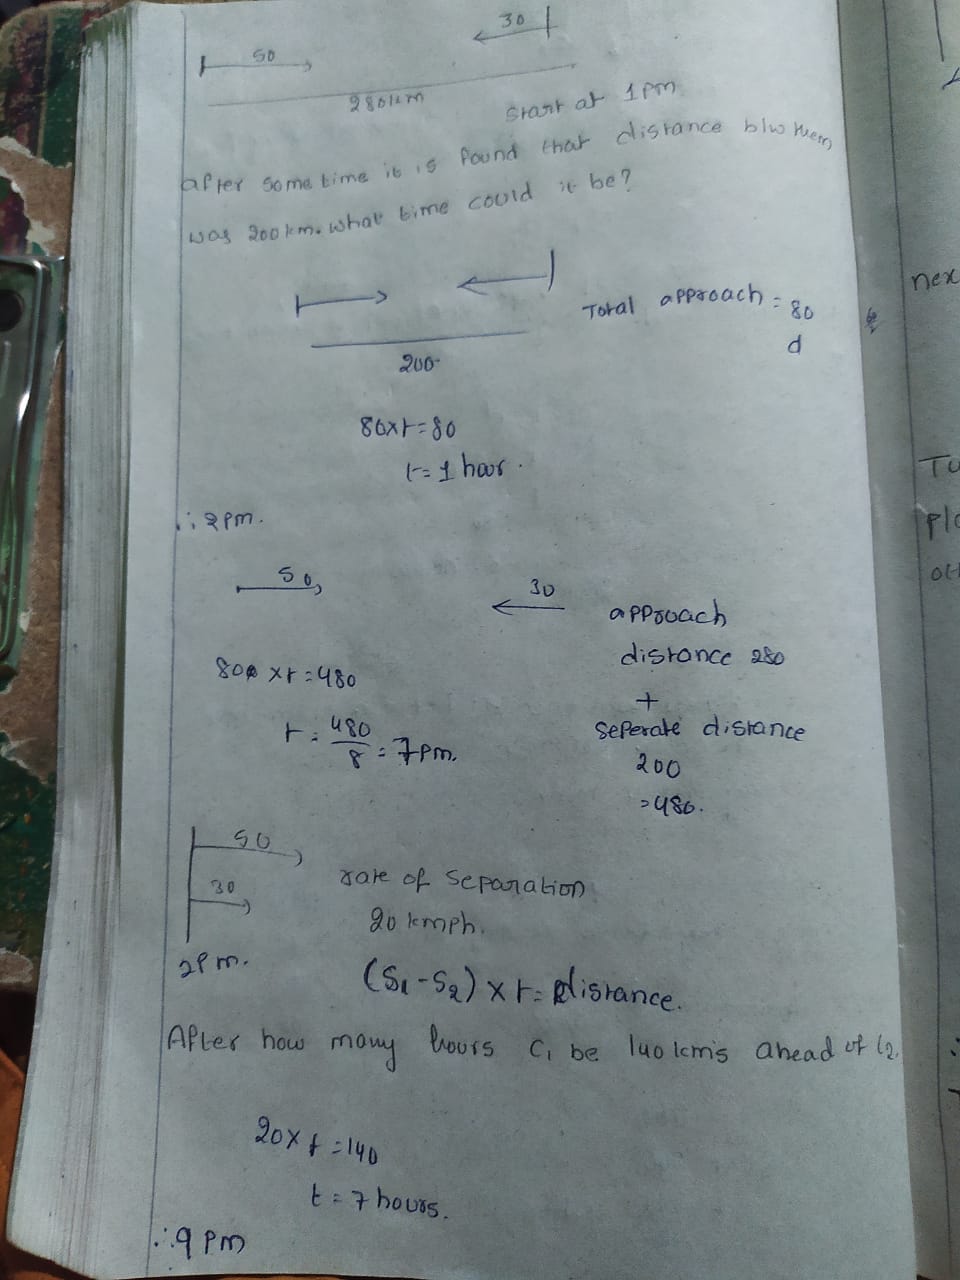 50
30
280km
Start at 1pm
after some time it is found that distance b/w them
was 200 km. what time could it be?
Total approach = 80
d
200
80×t=80
t=1 hour.
∴ 2pm.
50
30
approach
distance 280
+
seperate distance
200
=480.
80 ×t=480
t=480/8=7pm.
50
30
2pm.
rate of separation
20 kmph.
(S1-S2)×t=distance.
After how many hours C1 be 140 km's ahead of C2.
20×t=140
t=7 hours.
∴9 pm
nex
Tu
pl